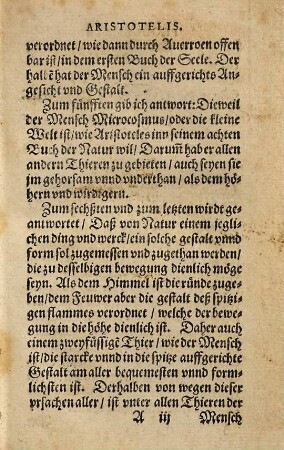 ARISTOTELIS.
verordnet / wie dann durch Auerroen offen
bar ist / in dem ersten Buch der Seele. Der
halbē hat der Mensch ein auffgerichts An-
gesicht vnd Gestalt.
Zum fünfften gib ich antwort: Dieweil
der Mensch Microcosmus / oder die kleine
Welt ist / wie Aristoteles inn seinem achten
Buch der Natur wil / Darum̃ hab er allen
andern Thieren zu gebieten / auch seyen sie
jm gehorsam vnnd vnderthan / als dem hö-
hern vnd wirdigern.
Zum sechßten vnd zum letzten wirdt ge-
antwortet / Daß von Natur einem jegli-
chen ding vnd werck / ein solche gestalt vnnd
form sol zugemessen vnd zugethan werden /
die zu desselbigen bewegung dienlich möge
seyn. Als dem Himmel ist die ründe zuge-
ben / dem Feuwer aber die gestalt deß spitzi-
gen flammes verordnet / welche der bewe-
gung in die höhe dienlich ist. Daher auch
einem zweyfüssigē Thier / wie der Mensch
ist / die starcke vnnd in die spitze auffgerichte
Gestalt am aller bequemesten vnnd form-
lichsten ist. Derhalben von wegen dieser
vrsachen aller / ist vnter allen Thieren der
A iij Mensch